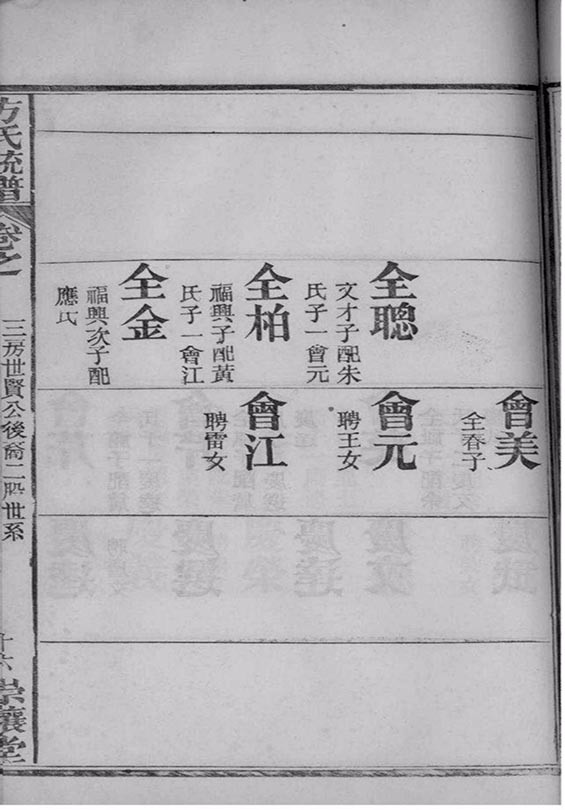 全聰
文才子配朱
氏子一會元
全柏
福興子配黃
氏子一會江
全金
福興次子配
應氏
會美
全春子
會元
聘王女
會江
聘雷女
方氏統譜
卷之
三房世賢公後裔二
世系
十六
堂